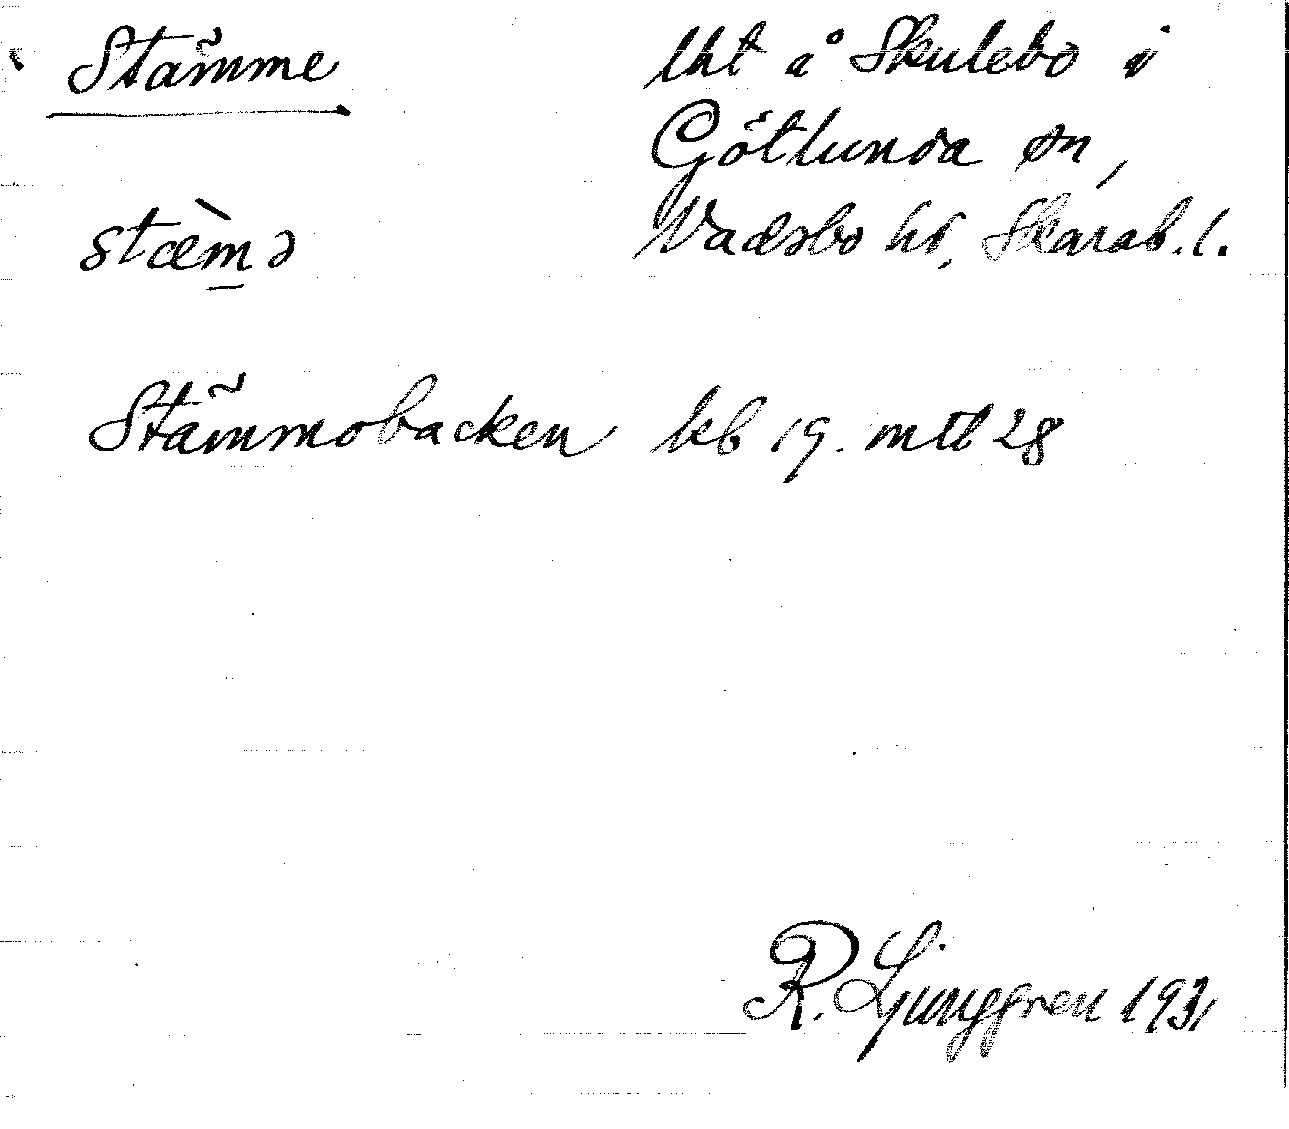 Stämme
lht å Skulebo i
Götlunda sn,
Vadsbo hd, Skarab. l.
stæ̀m̲ə
Stämmobacken kb 19. mtl 28
R. Ljunggren 1931